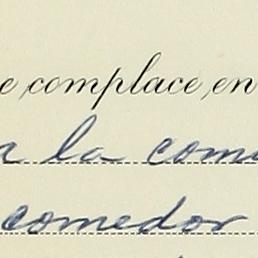 e complace en
a la com
comedor